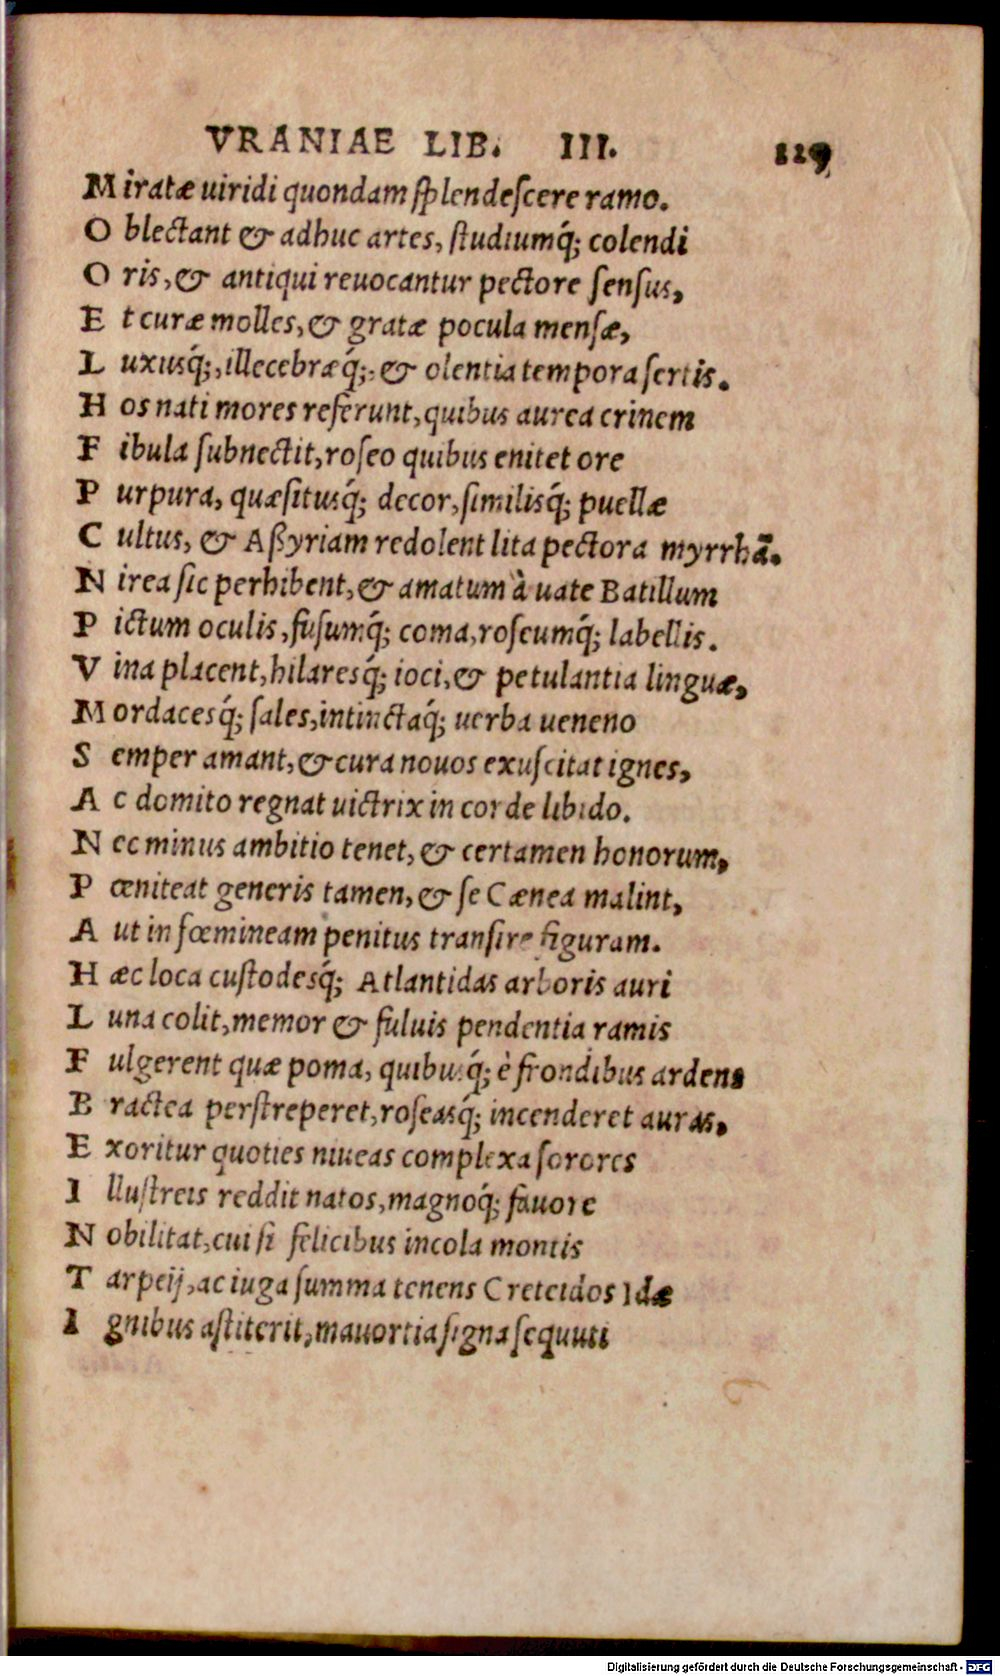 VRANIAE LIB. III. 129
Miratæ uiridi quondam splendescere ramo.
Oblectant & adhuc artes, studiumq́; colendi
Oris, & antiqui reuocantur pectore sensus,
Et curæ molles, & gratæ pocula mensæ,
Luxusq́;, illecebræq́;, & olentia tempora sertis.
Hos nati mores referunt, quibus aurea crinem
Fibula subnectit, roseo quibus enitet ore
Purpura, quæsitusq́; decor, similisq́; puellæ
Cultus, & Aßyriam redolent lita pectora myrrhā.
Nirea sic perhibent, & amatum à uate Batillum
Pictum oculis, fusumq́; coma, roseumq́; labellis.
Vina placent, hilaresq́; ioci, & petulantia linguæ,
Mordacesq́; sales, intinctaq́; uerba ueneno
Semper amant, & cura nouos exuscitat ignes,
Ac domito regnat uictrix in corde libido.
Nec minus ambitio tenet, & certamen honorum,
Pœniteat generis tamen, & se Cænea malint,
Aut in fœmineam penitus transire figuram.
Hæc loca custodesq́; Atlantidas arboris auri
Luna colit, memor & fuluis pendentia ramis
Fulgerent quæ poma, quibusq́; è frondibus ardens
Bractea perstreperet, roseasq́; incenderet auras,
Exoritur quoties niueas complexa sorores
Illustreis reddit natos, magnoq́; fauore
Nobilitat, cui si felicibus incola montis
Tarpeij, ac iuga summa tenens Creteidos Idæ
Ignibus astiterit, mauortia signa sequuti
Digitalisierung gefördert durch die Deutsche Forschungsgemeinschaft - DFG